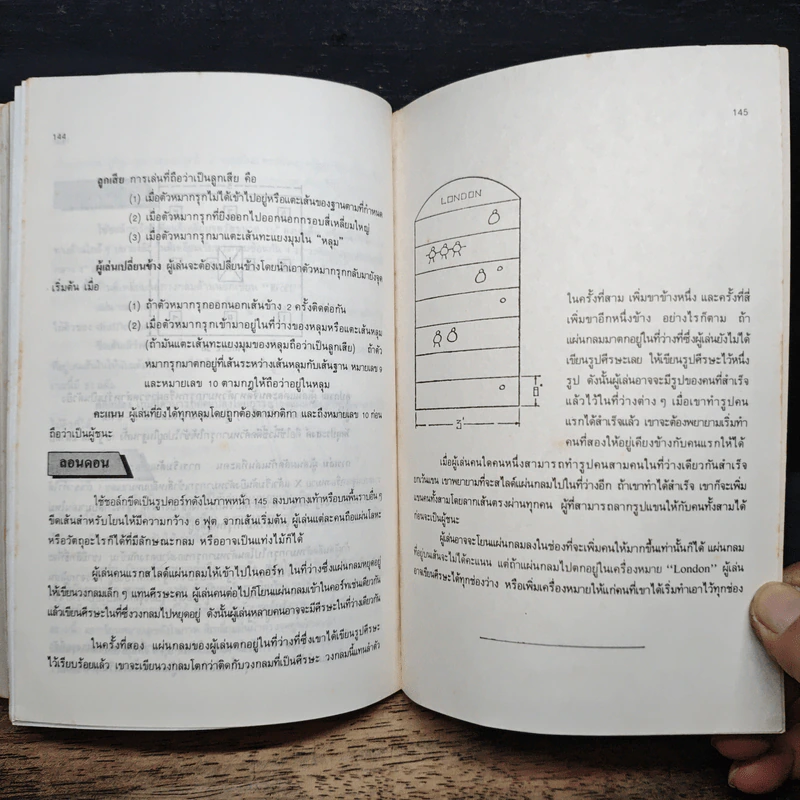 144
ลูกเสีย การเล่นที่ถือว่าเป็นลูกเสีย คือ
(1) เมื่อตัวหมากรุกไม่ได้เข้าไปอยู่หรือแตะเส้นของฐานตามที่กำหนด
(2) เมื่อตัวหมากรุกที่ยิงออกไปออกนอกกรอบสี่เหลี่ยมใหญ่
(3) เมื่อตัวหมากรุกมาแตะเส้นทะแยงมุมใน “หลุม”
ผู้เล่นเปลี่ยนข้าง ผู้เล่นจะต้องเปลี่ยนข้างโดยนำเอาตัวหมากรุกกลับมายังจุด
เริ่มต้น เมื่อ
(1) ถ้าตัวหมากรุกออกนอกเส้นข้าง 2 ครั้งติดต่อกัน
(2) เมื่อตัวหมากรุกเข้ามาอยู่ในที่ว่างของหลุมหรือแตะเส้นหลุม
(ถ้ามันแตะเส้นทะแยงมุมของหลุมถือว่าเป็นลูกเสีย) ถ้าตัว
หมากรุกมาตกอยู่ที่เส้นระหว่างเส้นหลุมกับเส้นฐาน หมายเลข 9
และหมายเลข 10 ตามกฎให้ถือว่าอยู่ในหลุม
คะแนน ผู้เล่นที่ยิงได้ทุกหลุมโดยถูกต้องตามกติกา และถึงหมายเลข 10 ก่อน
ถือว่าเป็นผู้ชนะ
ลอนดอน
ใช้ชอล์กขีดเป็นรูปคอร์ทดังในภาพหน้า 145 ลงบนทางเท้าหรือบนพื้นราบอื่น ๆ
ขีดเส้นสำหรับโยนให้มีความกว้าง 6 ฟุต จากเส้นเริ่มต้น ผู้เล่นแต่ละคนถือแผ่นโลหะ
หรือวัตถุอะไรก็ได้ที่มีลักษณะกลม หรืออาจเป็นแท่งไม้ก็ได้
ผู้เล่นคนแรกสไลด์แผ่นกลมให้เข้าไปในคอร์ท ในที่ว่างซึ่งแผ่นกลมหยุดอยู่
ให้เขียนวงกลมเล็ก ๆ แทนศีรษะคน ผู้เล่นคนต่อไปก็โยนแผ่นกลมเข้าในคอร์ทเช่นเดียวกัน
แล้วเขียนศีรษะในที่ซึ่งวงกลมไปหยุดอยู่ ดังนั้นผู้เล่นหลายคนอาจจะมีศีรษะในที่ว่างเดียวกัน
ในครั้งที่สอง แผ่นกลมของผู้เล่นตกอยู่ในที่ว่างที่ซึ่งเขาได้เขียนรูปศีรษะ
ไว้เรียบร้อยแล้ว เขาจะเขียนวงกลมโตกว่าติดกับวงกลมที่เป็นศีรษะ วงกลมนี้แทนลำตัว
145
LONDON
18"
3'
ในครั้งที่สาม เพิ่มขาข้างหนึ่ง และครั้งที่สี่
เพิ่มขาอีกหนึ่งข้าง อย่างไรก็ตาม ถ้า
แผ่นกลมมาตกอยู่ในที่ว่างที่ซึ่งผู้เล่นยังไม่ได้
เขียนรูปศีรษะเลย ให้เขียนรูปศีรษะไว้หนึ่ง
รูป ดังนั้นผู้เล่นอาจจะมีรูปของคนที่สำเร็จ
แล้วไว้ในที่ว่างต่าง ๆ เมื่อเขาทำรูปคน
แรกได้สำเร็จแล้ว เขาจะต้องพยายามเริ่มทำ
คนที่สองให้อยู่เคียงข้างกับคนแรกให้ได้
เมื่อผู้เล่นคนใดคนหนึ่งสามารถทำรูปคนสามคนในที่ว่างเดียวกันสำเร็จ
ยกเว้นแขน เขาพยายามที่จะสไลด์แผ่นกลมไปในที่ว่างอีก ถ้าเขาทำได้สำเร็จ เขาก็จะเพิ่ม
แขนคนทั้งสามโดยลากเส้นตรงผ่านทุกคน ผู้ที่สามารถลากรูปแขนให้กับคนทั้งสามได้
ก่อนจะเป็นผู้ชนะ
ผู้เล่นอาจจะโยนแผ่นกลมลงในช่องที่จะเพิ่มคนให้มากขึ้นเท่านั้นก็ได้ แผ่นกลม
ที่อยู่บนเส้นจะไม่ได้คะแนน แต่ถ้าแผ่นกลมไปตกอยู่ในเครื่องหมาย “London” ผู้เล่น
อาจเขียนศีรษะได้ทุกช่องว่าง หรือเพิ่มเครื่องหมายให้แก่คนที่เขาได้เริ่มทำเอาไว้ทุกช่อง